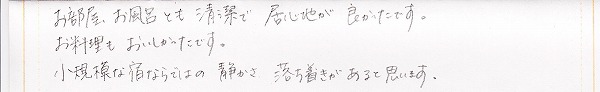 お部屋、お風呂とも清潔で居心地が良かったです。
お料理もおいしかったです。
小規模な宿ならではの静かさ、落ち着きがあると思います。